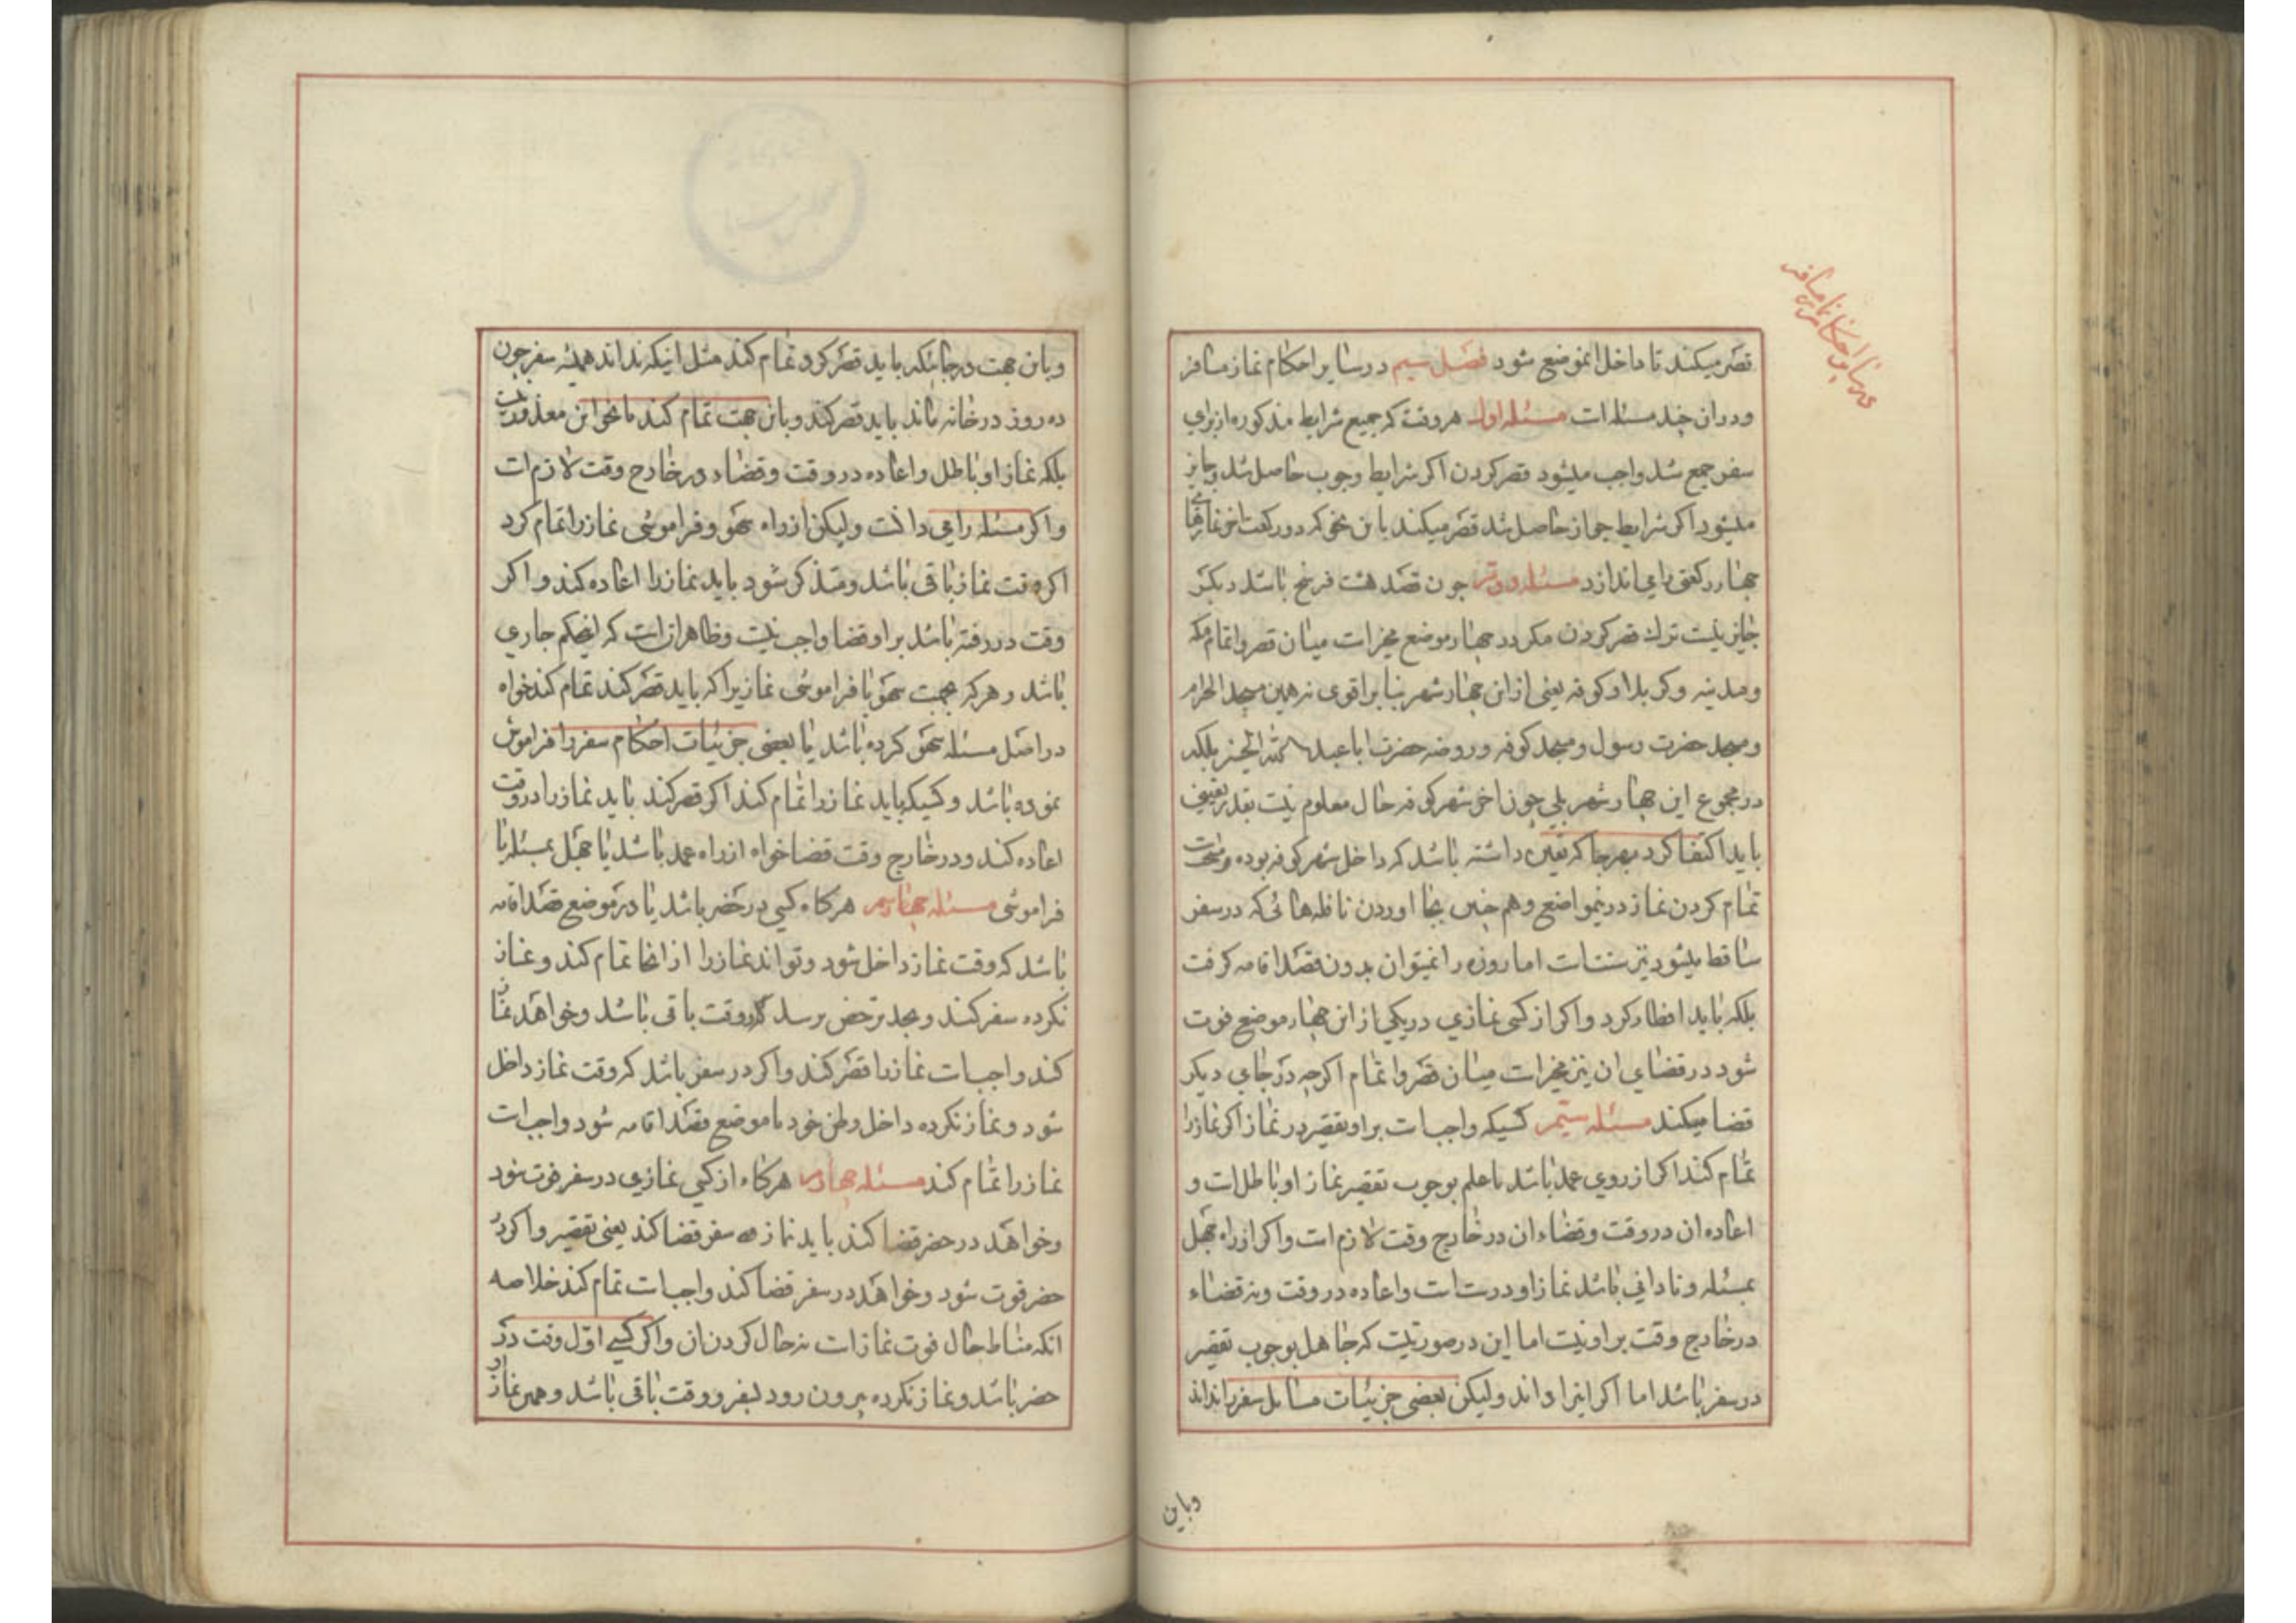 در سایر احکام نماز مسافر
قصر میکند تا داخل انموضع شود فصل سیم در سایر احکام نماز مسافر
و در ان چند مسئله است مسئله اول هر وقت که جمیع شرایط مذکوره از برای
سفر جمع شد واجب میشود قصر کردن اکر شرایط وجوب حاصل شد و جایز
میشود اکر شرایط جواز حاصل شد قصر میکند باین نحو که دو رکعت اخر نمازهای
چهار رکعتی را می اندازد مسئله دویم چون قصد هشت فرسخ باشد دیکر
جایز نیست ترک قصر کردن مکر در چهار موضع مخیر است میان قصر و اتمام مکه
و مدینه و کربلا و کوفه یعنی از این چهار شهر بنا بر اقوی نه همین مسجد الحرام
و مسجد حضرت رسول و مسجد کوفه و روضه حضرت ابا عبد الله الحسین بلکه
در مجموع این چهار شهر بلی چون اخر شهر کوفه حال معلوم نیست بقدر یقینی
باید اکتفا کرد بهر جا که یقین داشته باشد که داخل شهر کوفه بوده و
تمام کردن نماز در اینمواضع و هم چنین بجا اوردن نافله هائی که در سفر
ساقط میشود نیز سنت است اما روزه را نمیتوان بدون قصد اقامه کرفت
بلکه باید افطار کرد و اکر از کسی نمازی در یکی از این چهار موضع فوت
شود در قضای ان نیز مخیر است میان قصر و اتمام اکر چه در جای دیکر
قضا میکند مسئله سیم کسیکه واجب است بر او تقصیر در نماز اکر نماز را
تمام کند اکر از روی عمد باشد با علم بوجوب تقصیر نماز او باطل است و
اعاده ان در وقت و قضاء ان در خارج وقت لازم است و اکر از راه جهل
بمسئله و نادانی باشد نماز او درست است و اعاده در وقت و نه قضاء
در خارج وقت بر او نیست اما این در صورتیست که جاهل بوجوب تقصیر
در سفر باشد اما اکر اینرا داند ولیکن بعضی جزئیات مسایل سفر را نداند
و باین
و باین جهت در جائیکه باید قصر کرد تمام کند مثل اینکه نداند همیشه سفر چون
ده روز در خانه ماند باید قصر کند و باین جهت تمام کند ما نحو این معذور نیست
بلکه نماز او باطل و اعاده در وقت و قضاء در خارج وقت لازم است
و اکر مسئله را می دانست ولیکن از راه سهو و فراموشی نماز را تمام کرد
اکر وقت نماز باقی باشد و متذکر شود باید نماز را اعاده کند و اکر
وقت در رفته باشد بر او قضا واجب نیست و ظاهر ان است که اینحکم جاری
باشد و هر که بجهت سهو یا فراموشی نمازیرا که باید قصر کند تمام کند خواه
در اصل مسئله سهو کرده باشد یا بعضی جزئیات احکام سفر را فراموش
نموده باشد و کسیکه باید نماز را تمام کند اکر قصر کند باید نماز را در وقت
اعاده کند و در خارج وقت قضا خواه از راه عمد باشد یا جهل بمسئله یا
فراموشی مسئله چهارم هر کاه کسی در حضر باشد یا در موضع قصد اقامه
باشد که وقت نماز داخل شود و تواند نماز را از انجا تمام کند و نماز
نکرده سفر کند و بحد ترخص برسد که وقت باقی باشد و خواهد نماز
کند واجب است نماز را قصر کند و اکر در سفر باشد که وقت نماز داخل
شود و نماز نکرده داخل وطن خود یا موضع قصد اقامه شود واجب است
نماز را تمام کند مسئله چهارم هر کاه از کسی نمازی در سفر فوت شود
و خواهد در حضر قضا کند باید نماز سفر قضا کند یعنی تقصیر و اکر در
حضر فوت شود و خواهد در سفر قضا کند واجب است تمام کند خلاصه
انکه مناط حال فوت نماز است نه حال کردن ان و اکر کسی اول وقت در
حضر باشد و نماز نکرده بیرون رود بسفر و وقت باقی باشد و همین نماز از او